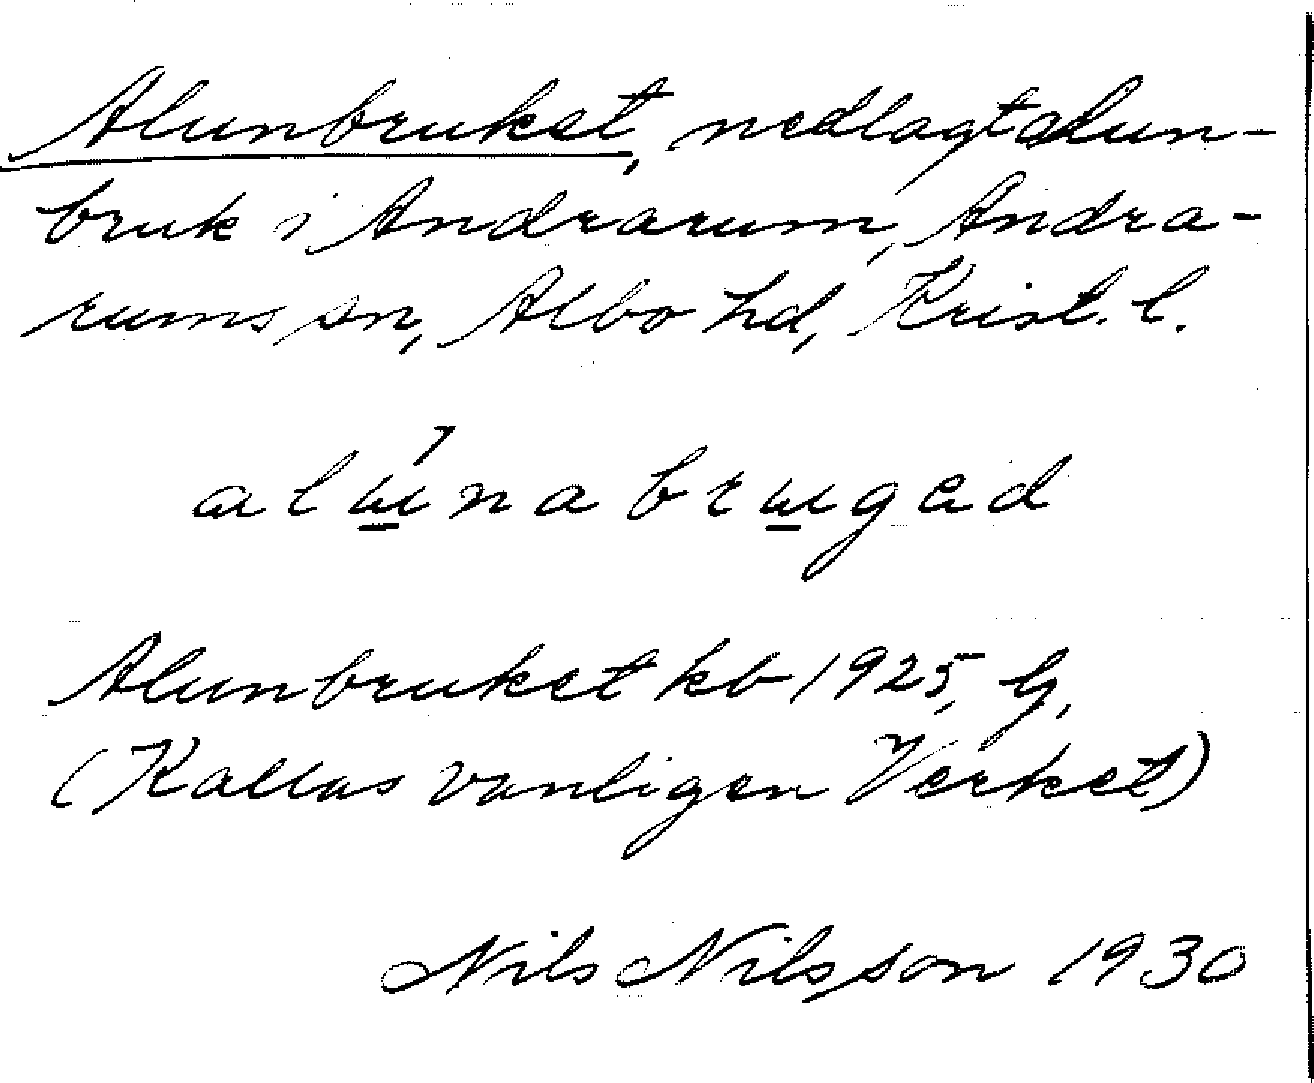 Alunbruket, nedlagt alun-
bruk i Andrarum, Andra-
rums sn, Albo hd, Krist. l.
alɯ́na brɯgad
Alunbruket kb 1925, G,
(Kallas vanligen Verket)
Nils Nilsson 1930